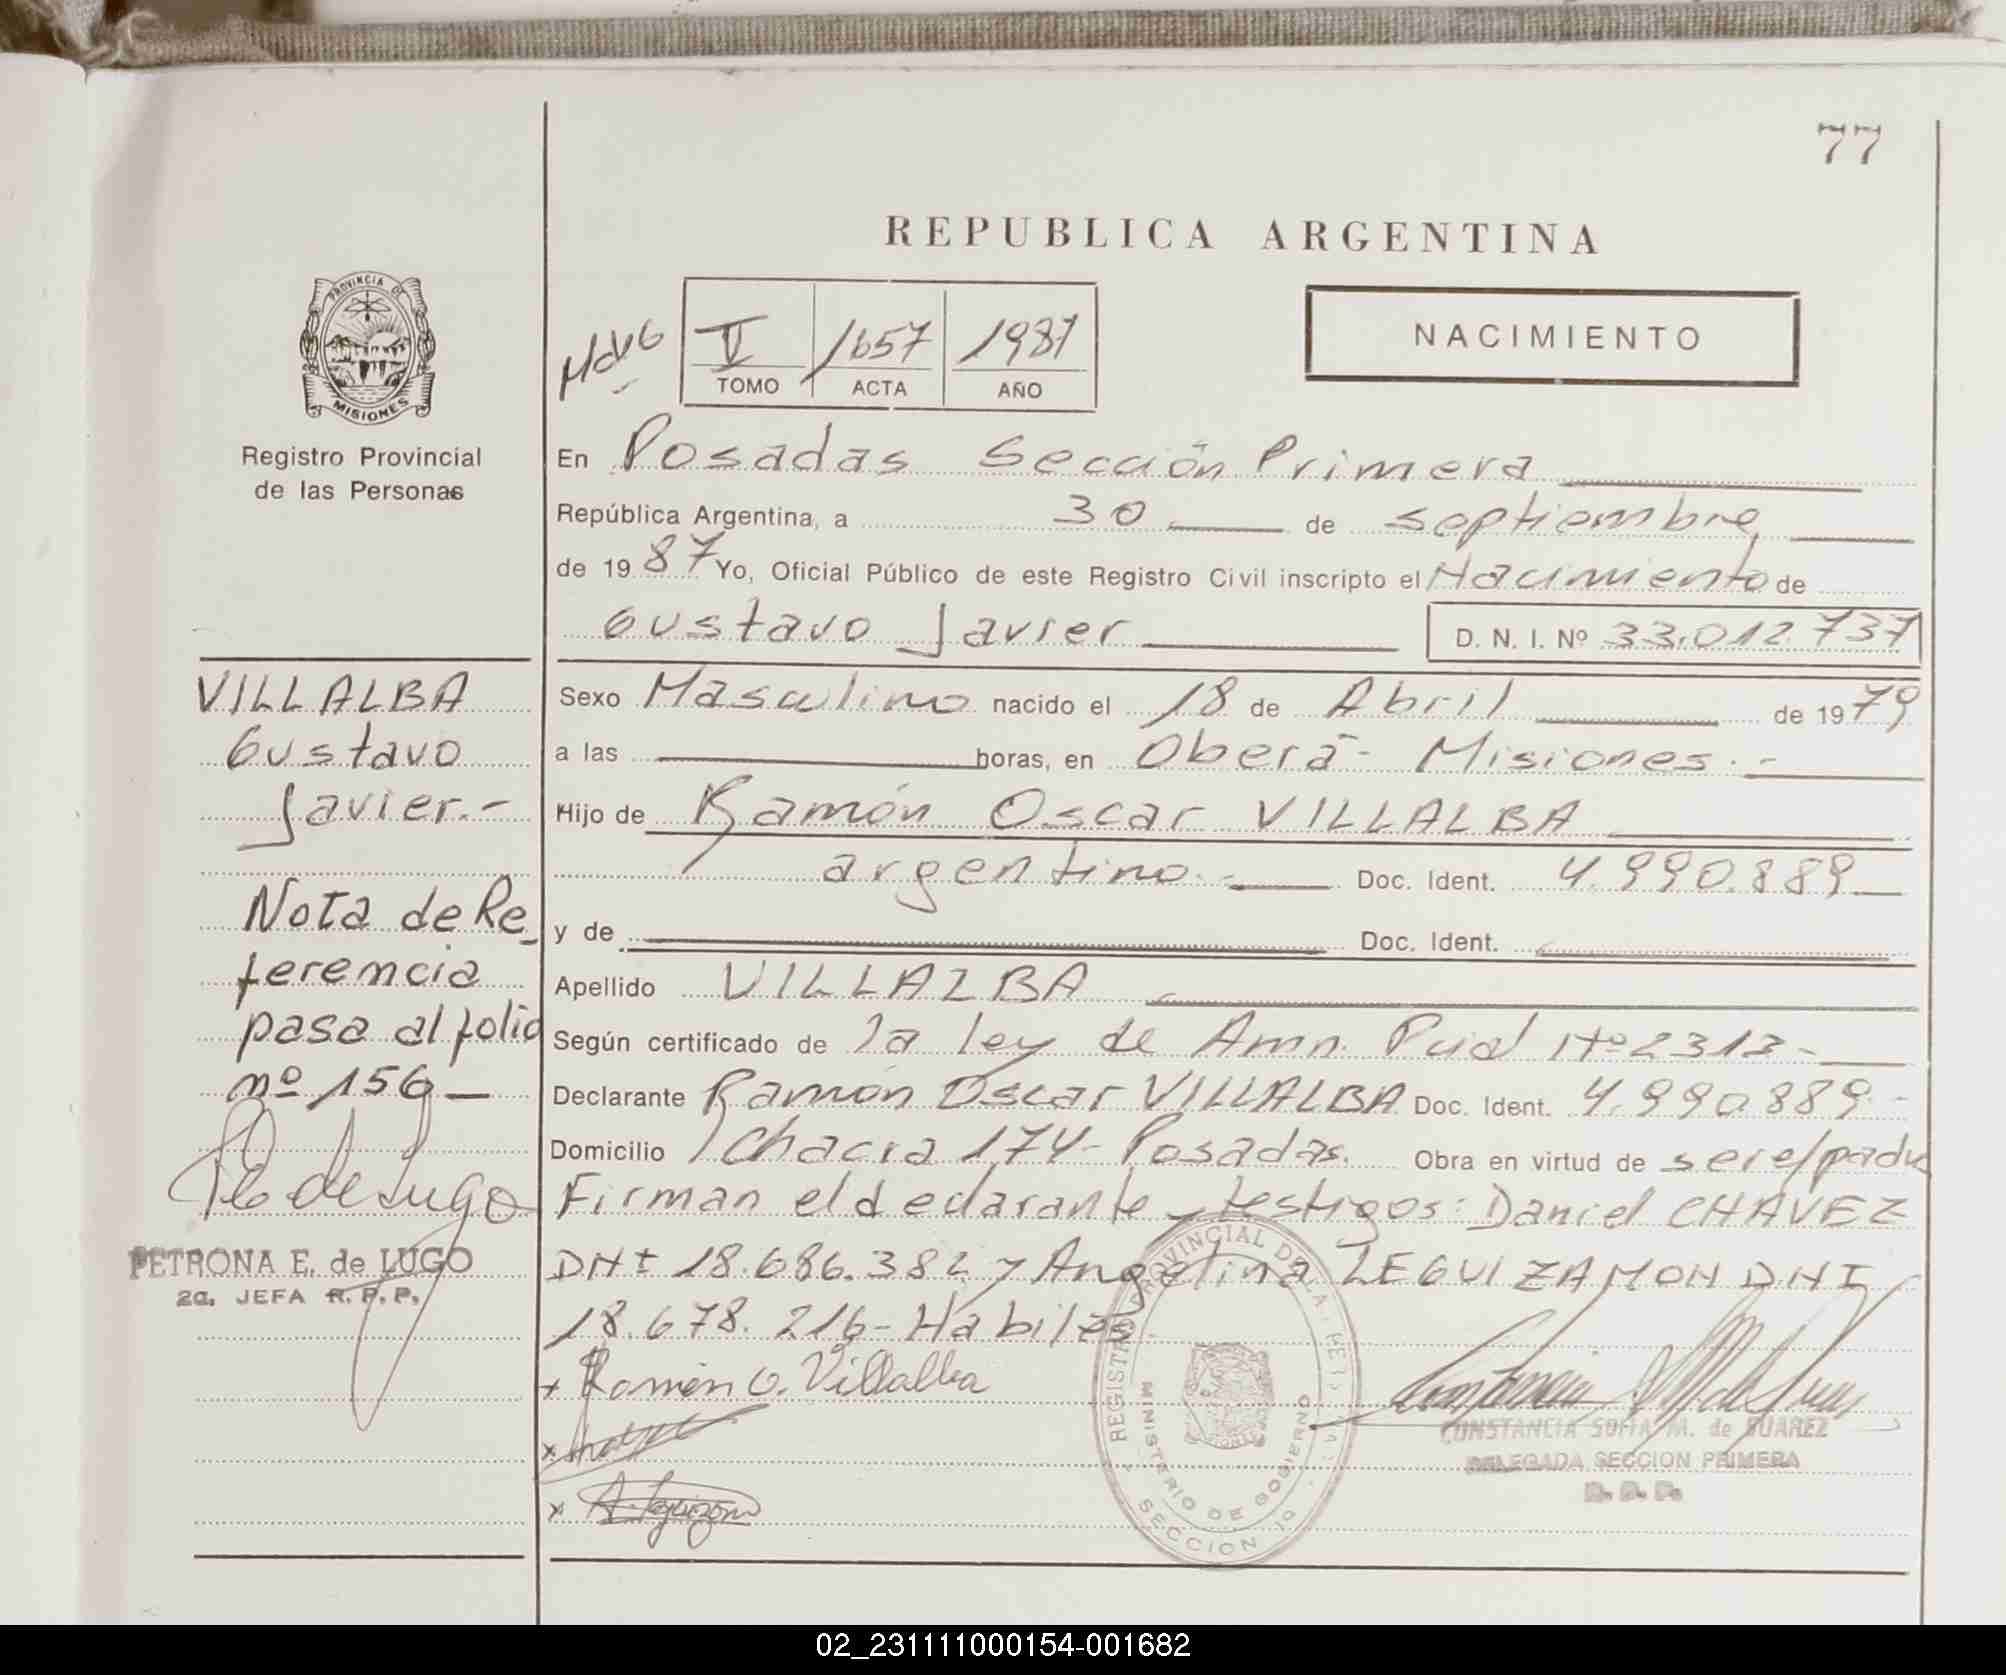 77
REPUBLICA ARGENTINA
PROVINCIA DE
MISIONES
V 1657 1987
TOMO ACTA AÑO
NACIMIENTO
Registro Provincial
de las Personas
En Posadas Sección Primera
República Argentina, a 30 de septiembre
de 1987 Yo, Oficial Público de este Registro Civil inscripto el Nacimiento de
Gustavo Javier D. N. I. Nº 33.012.737
VILLALBA
Gustavo
Javier.-
Nota de Re_
ferencia
pasa al folio
nº 156_
PETRONA E. de LUGO
2a. JEFA R. P. P.
Sexo Masculino nacido el 18 de Abril de 1979
a las horas, en Oberá - Misiones.-
Hijo de Ramón Oscar VILLALBA
argentino.- Doc. Ident. 4.990.889
y de Doc. Ident.
Apellido VILLALBA
Según certificado de la ley de Amn. Pcial Nº 2313-
Declarante Ramón Oscar VILLALBA Doc. Ident. 4.990.889-
Domicilio Chacra 174- Posadas. Obra en virtud de ser el padre
Firman el declarante y testigos: Daniel CHAVEZ
DNI 18.686.382 y Angelina LEGUIZAMON DNI
18.678.216- Habiles
x Ramón O. Villalba
x
x A. Leguizamon
REGISTRO PROVINCIAL DE LAS PERSONAS
MINISTERIO DE GOBIERNO
SECCION 1a
CONSTANCIA SOFIA M. de SUAREZ
DELEGADA SECCION PRIMERA
R. P. P.
02_231111000154-001682